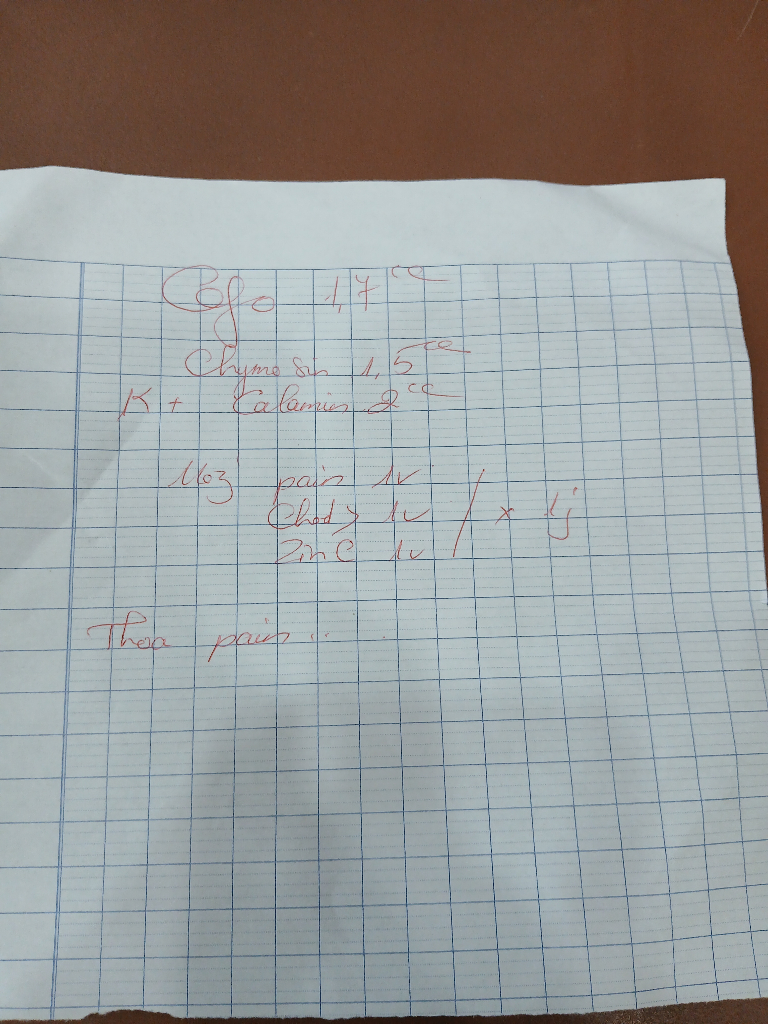 Cefo 1,7 cc
Chymosin 1,5 cc
K + Calamin 2 cc
pain 1v
1v / x 1j
Zin C 1v
Thoa pain ..